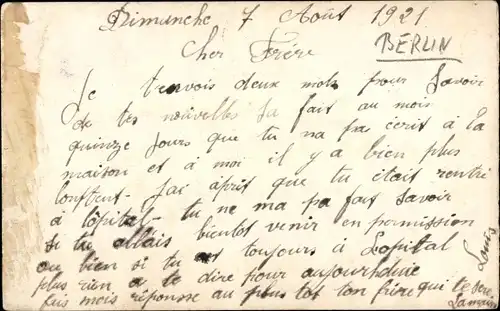 Dimanche 7 Août 1921
BERLIN
Cher Frère
Je tenvois deux mots pour savoir
de tes nouvelles sa fait au mois
quinze jours que tu na pas écrit à la
maison et à moi il y a bien plus
lonftent. Jai aprit que tu était rentré
à lôpital tu ne ma pa fait savoir
si tu allais bientot venir en permission
ou bien si tu est toujours à Lopital
plus rien a te dire pour aujourdhuie
fais mois réponse au plus tot ton frère qui te sere
la main
Louis